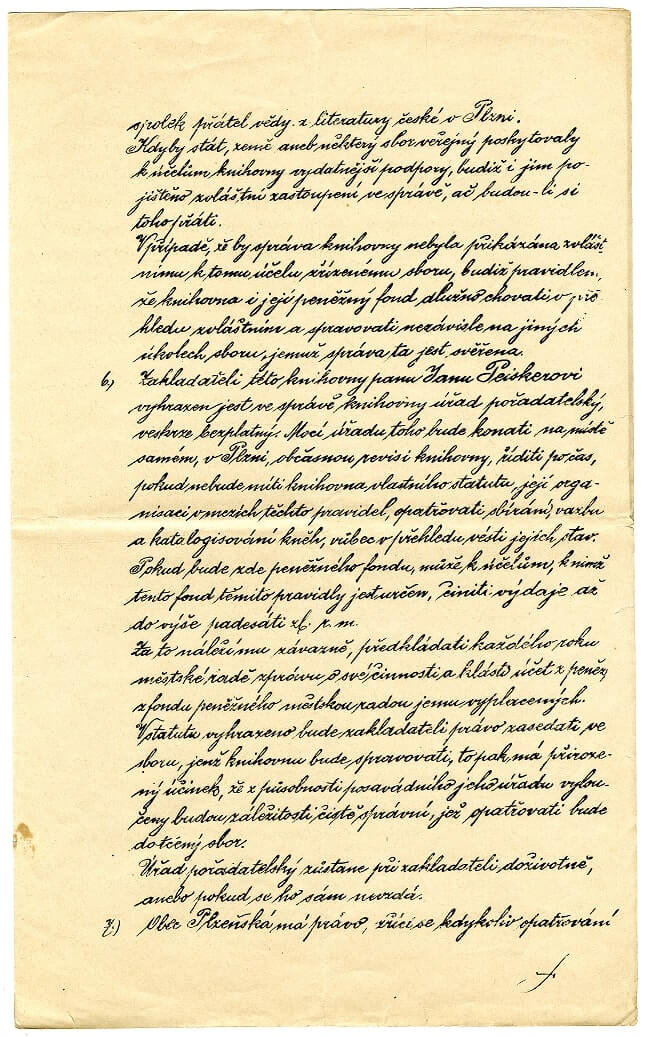 spolek přátel vědy z literatury české v Plzni.
Kdyby stát, země aneb některý sbor veřejný poskytovaly
k účelům knihovny vydatnější podpory, budiž i jim po-
jištěno zvláštní zastoupení ve správě, ač budou-li si
toho přáti.
V případě, že by správa knihovny nebyla přikázána zvlášt-
nímu k tomu účelu zřízenému sboru, budiž pravidlem,
že knihovna i její peněžný fond dlužno chovati v pře-
hledu zvláštním a spravovati nezávisle na jiných
úkolech sboru, jemuž správa ta jest svěřena.
6,) Zakladateli této knihovny panu Janu Peiskerovi
vyhrazen jest ve správě knihovny úřad pořadatelský,
veskrze bezplatný. Mocí úřadu toho bude konati na místě
samém, v Plzni, občasnou revisi knihovny, říditi po čas,
pokud nebude míti knihovna vlastního statutu, její orga-
nisaci v mezích těchto pravidel, opatřovati sbírání, vazbu
a katalogisování kněh, vůbec v přehledu vésti jejich stav.
Pokud bude zde peněžného fondu, může k účelům, k nimž
tento fond těmito pravidly jest určen, činiti výdaje až
do výše padesáti zl. r. m.
Za to náleží mu závazně, předkládati každého roku
městské radě zprávu o své činnosti a klásti účet z peněz,
z fondu peněžného městskou radou jemu vyplacených.
V statutu vyhrazeno bude zakladateli právo zasedati ve
sboru, jenž knihovnu bude spravovati, to pak má přiroze-
ný účinek, že z působnosti posavádního jeho úřadu vylou-
čeny budou záležitosti čistě správní, jež opatřovati bude
dotčený sbor.
Úřad pořadatelský zůstane při zakladateli doživotně,
anebo pokud se ho sám nevzdá.
7.) Obec Plzeňská má právo, zříci se kdykoliv opatřování